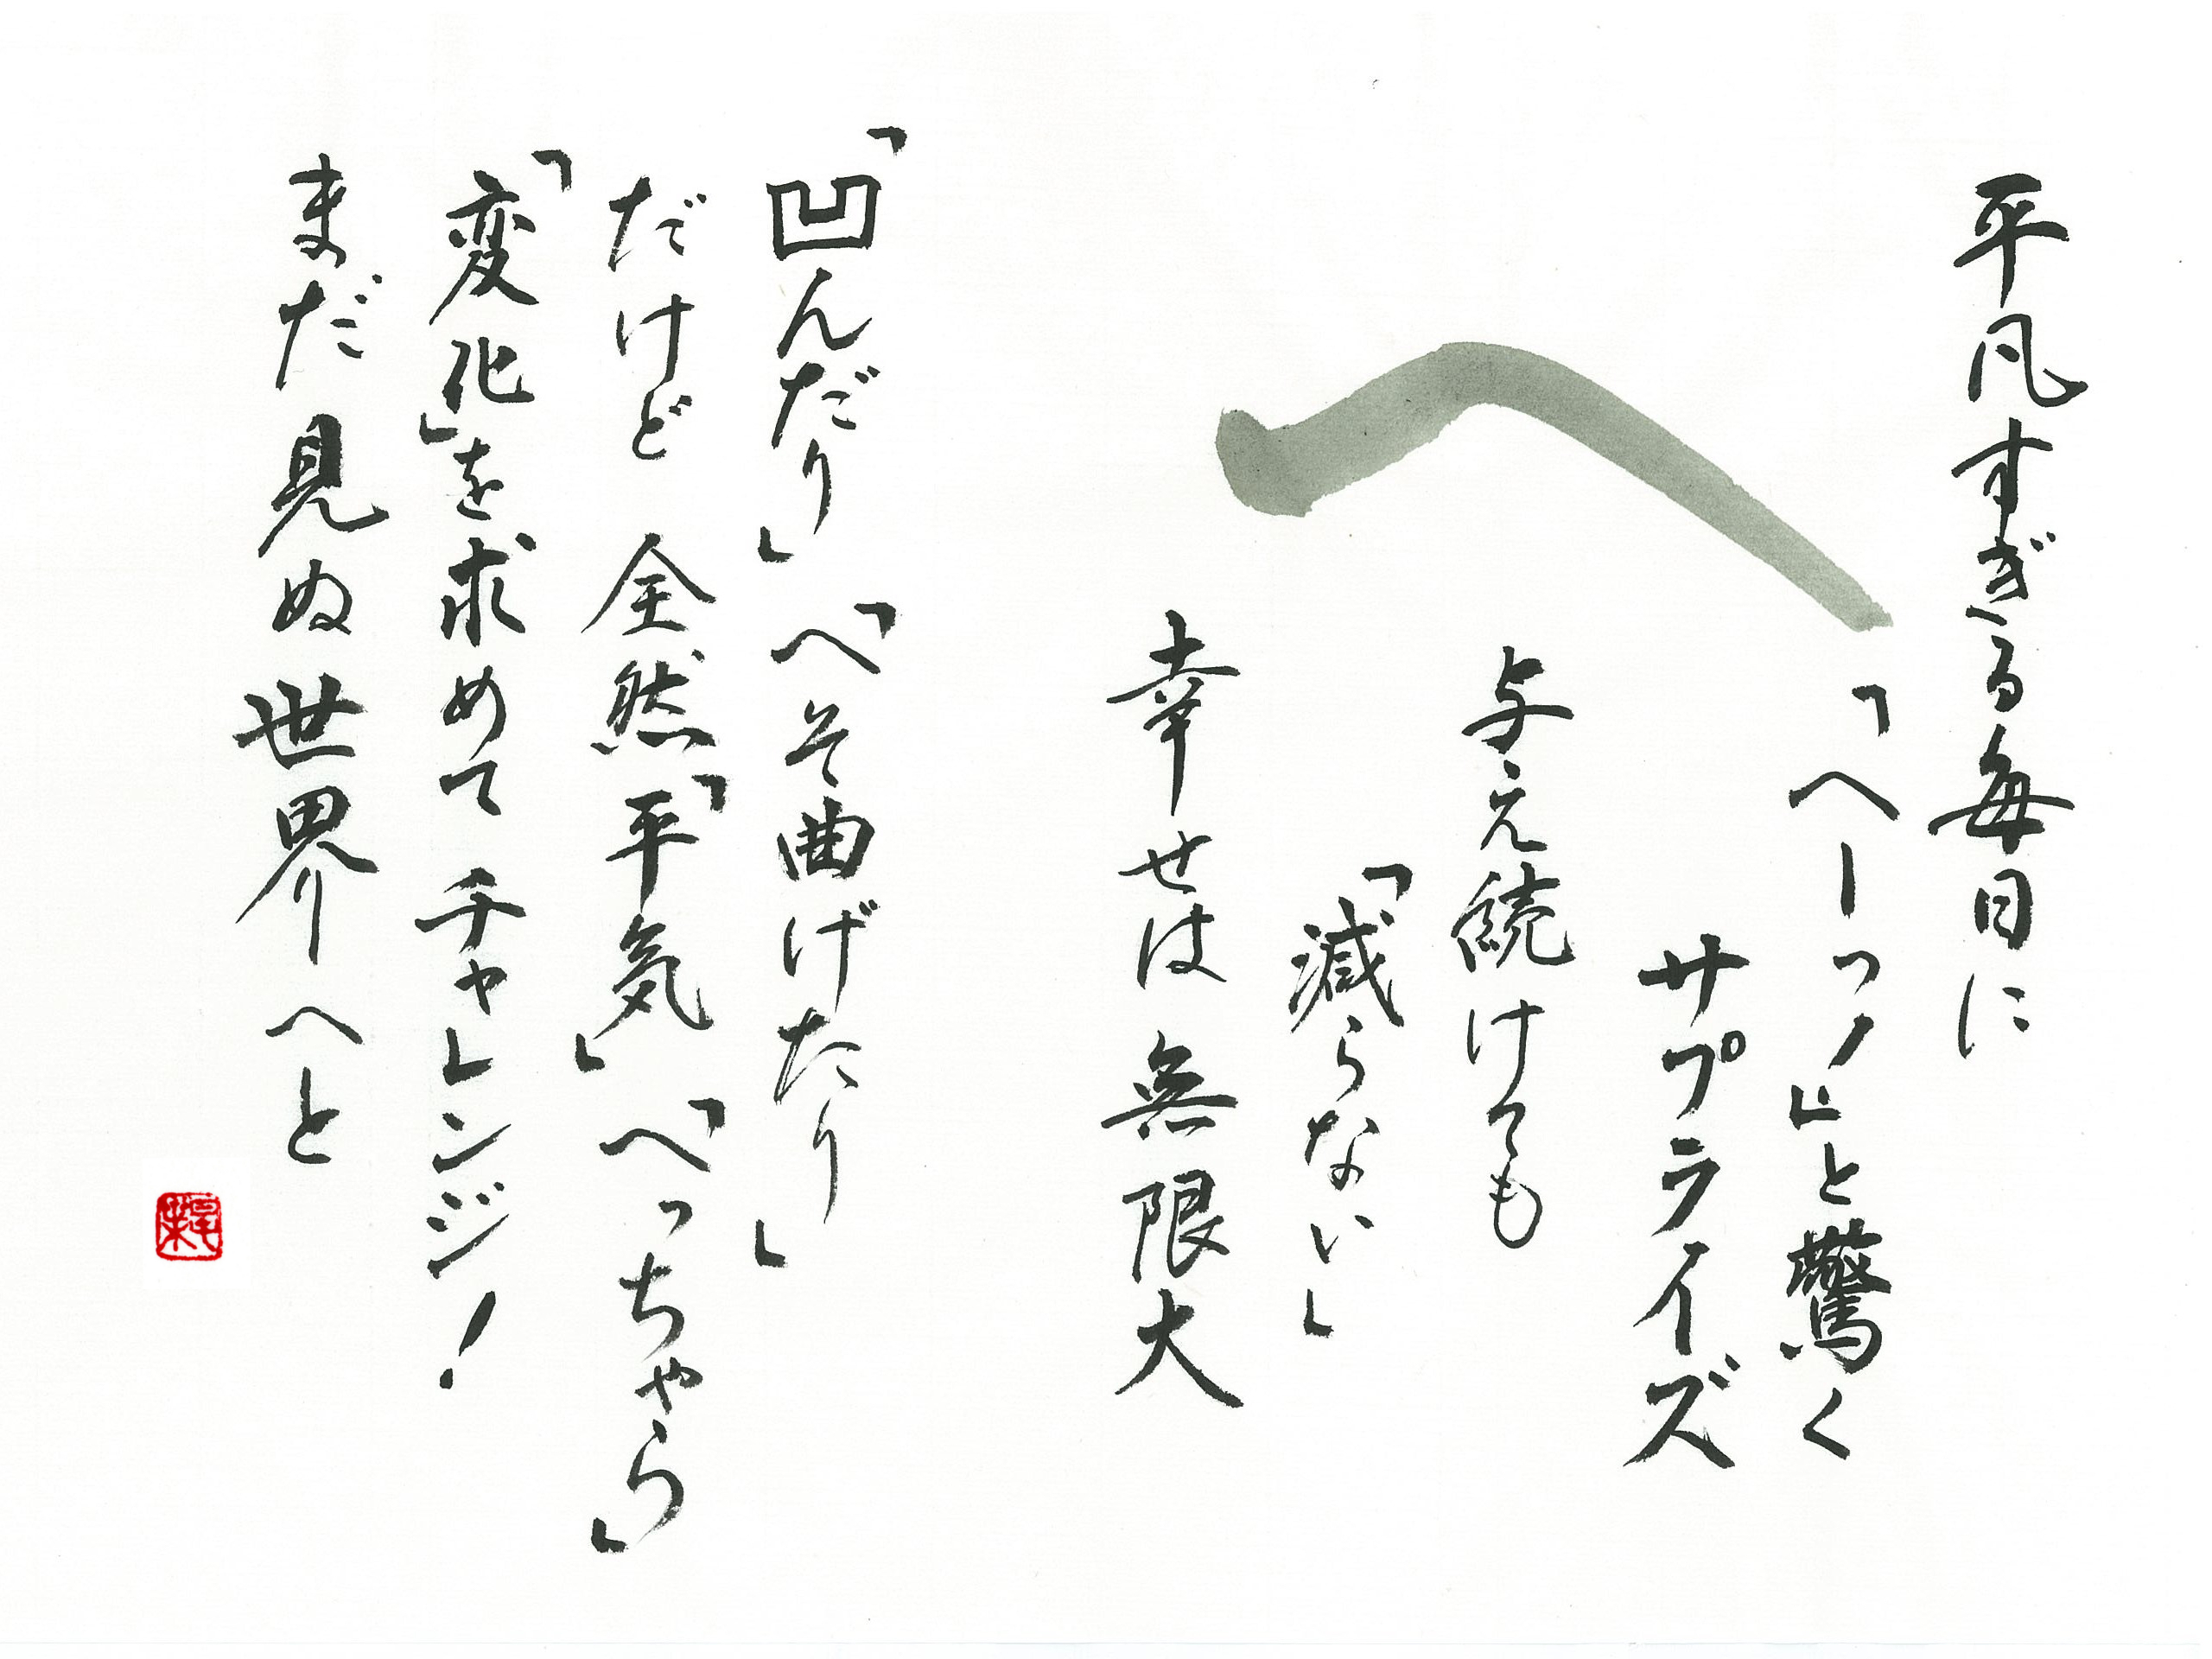 へ
平凡すぎる毎日に
「へーっ!」と驚く
サプライズ
与え続けても
「減らない」
幸せは 無限大
「凹んだり」「へそ曲げたり」
だけど 全然「平気」「へっちゃら」
「変化」を求めて チャレンジ!
まだ見ぬ世界へと